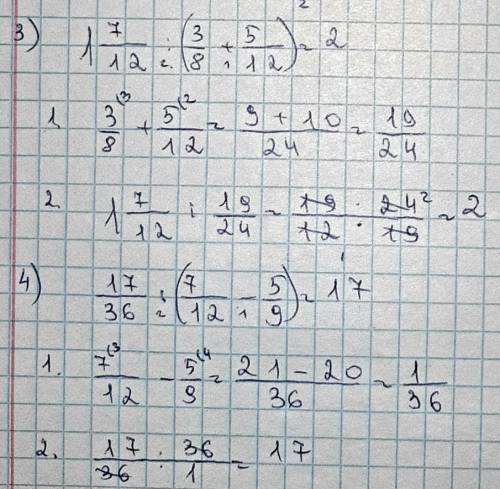 3) 1 7/12 : (3/8 + 5/12) = 2
1. 3/8 (3 + 5/12 (2 = 9 + 10/24 = 19/24
2. 1 7/12 : 19/24 = 19 · 24 2/12 · 19 = 2
4) 17/36 : (7/12 - 5/9) = 17
1. 7/12 (3 - 5/9 (4 = 21 - 20/36 = 1/36
2. 17/36 : 36/1 = 17